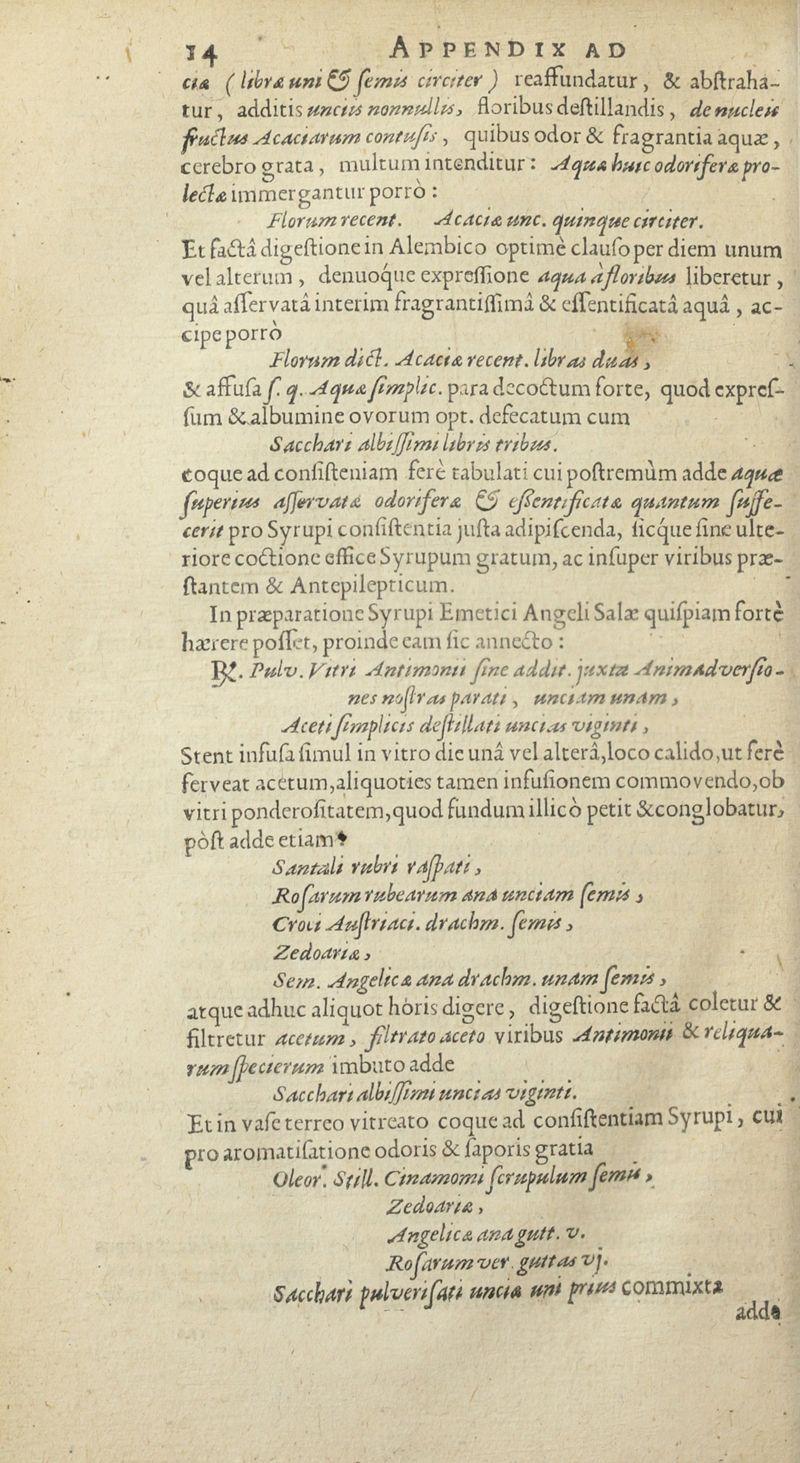 14 APPENDIX AD
ciæ (libræ uni & semis circiter) reaffundatur, & abstraha-
tur, additis unciis nonnullis, floribus destillandis, de nucleis
fructus Acaciarum contusis, quibus odor & fragrantia aquæ,
cerebro grata, multum intenditur: Aquæ huic odoriferæ pro-
lectæ immergantur porrò:
Florum recent. Acaciæ unc. quinque circiter.
Et factâ digestione in Alembico optimè clauso per diem unum
vel alterum, denuoque expressione aqua à floribus liberetur,
quâ asservatâ interim fragrantissimâ & essentificatâ aquâ, ac-
cipe porrò
Florum dict. Acaciæ recent. libras duas,
& affusa s. q. Aquæ simplic. para decoctum forte, quod expres-
sum & albumine ovorum opt. defecatum cum
Sacchari albissimi libris tribus.
coque ad consisteniam ferè tabulati cui postremùm adde aquæ
superius asservatæ odoriferæ & essentificatæ quantum suffe-
cerit pro Syrupi consistentia justa adipiscenda, sicque sine ulte-
riore coctione effice Syrupum gratum, ac insuper viribus præ-
stantem & Antepilepticum.
In præparatione Syrupi Emetici Angeli Salæ quispiam fortè
hærere posset, proinde eam sic annecto:
℞. Pulv. Vitri Antimonii sine addit. juxta Animadversio-
nes nostras parati, unciam unam,
Aceti simplicis destillati uncias viginti,
Stent infusa simul in vitro die unâ vel alterâ, loco calido, ut ferè
ferveat acetum, aliquoties tamen infusionem commovendo, ob
vitri ponderositatem, quod fundum illicò petit & conglobatur,
pòst adde etiam
Santali rubri raspati,
Rosarum rubearum ana unciam semis,
Croci Austriaci. drachm. semis,
Zedoariæ,
Sem. Angelicæ ana drachm. unam semis,
atque adhuc aliquot hòris digere, digestione factâ coletur &
filtretur acetum, filtrato aceto viribus Antimonii & reliqua-
rum specierum imbuto adde
Sacchari albissimi uncias viginti.
Et in vase terreo vitreato coque ad consistentiam Syrupi, cui
pro aromatisatione odoris & saporis gratia
Oleor. Still. Cinamomi scrupulum semis,
Zedoariæ,
Angelicæ ana gutt. v.
Rosarum ver. guttas vj.
Sacchari pulverisati uncia uni prius commixta
adde